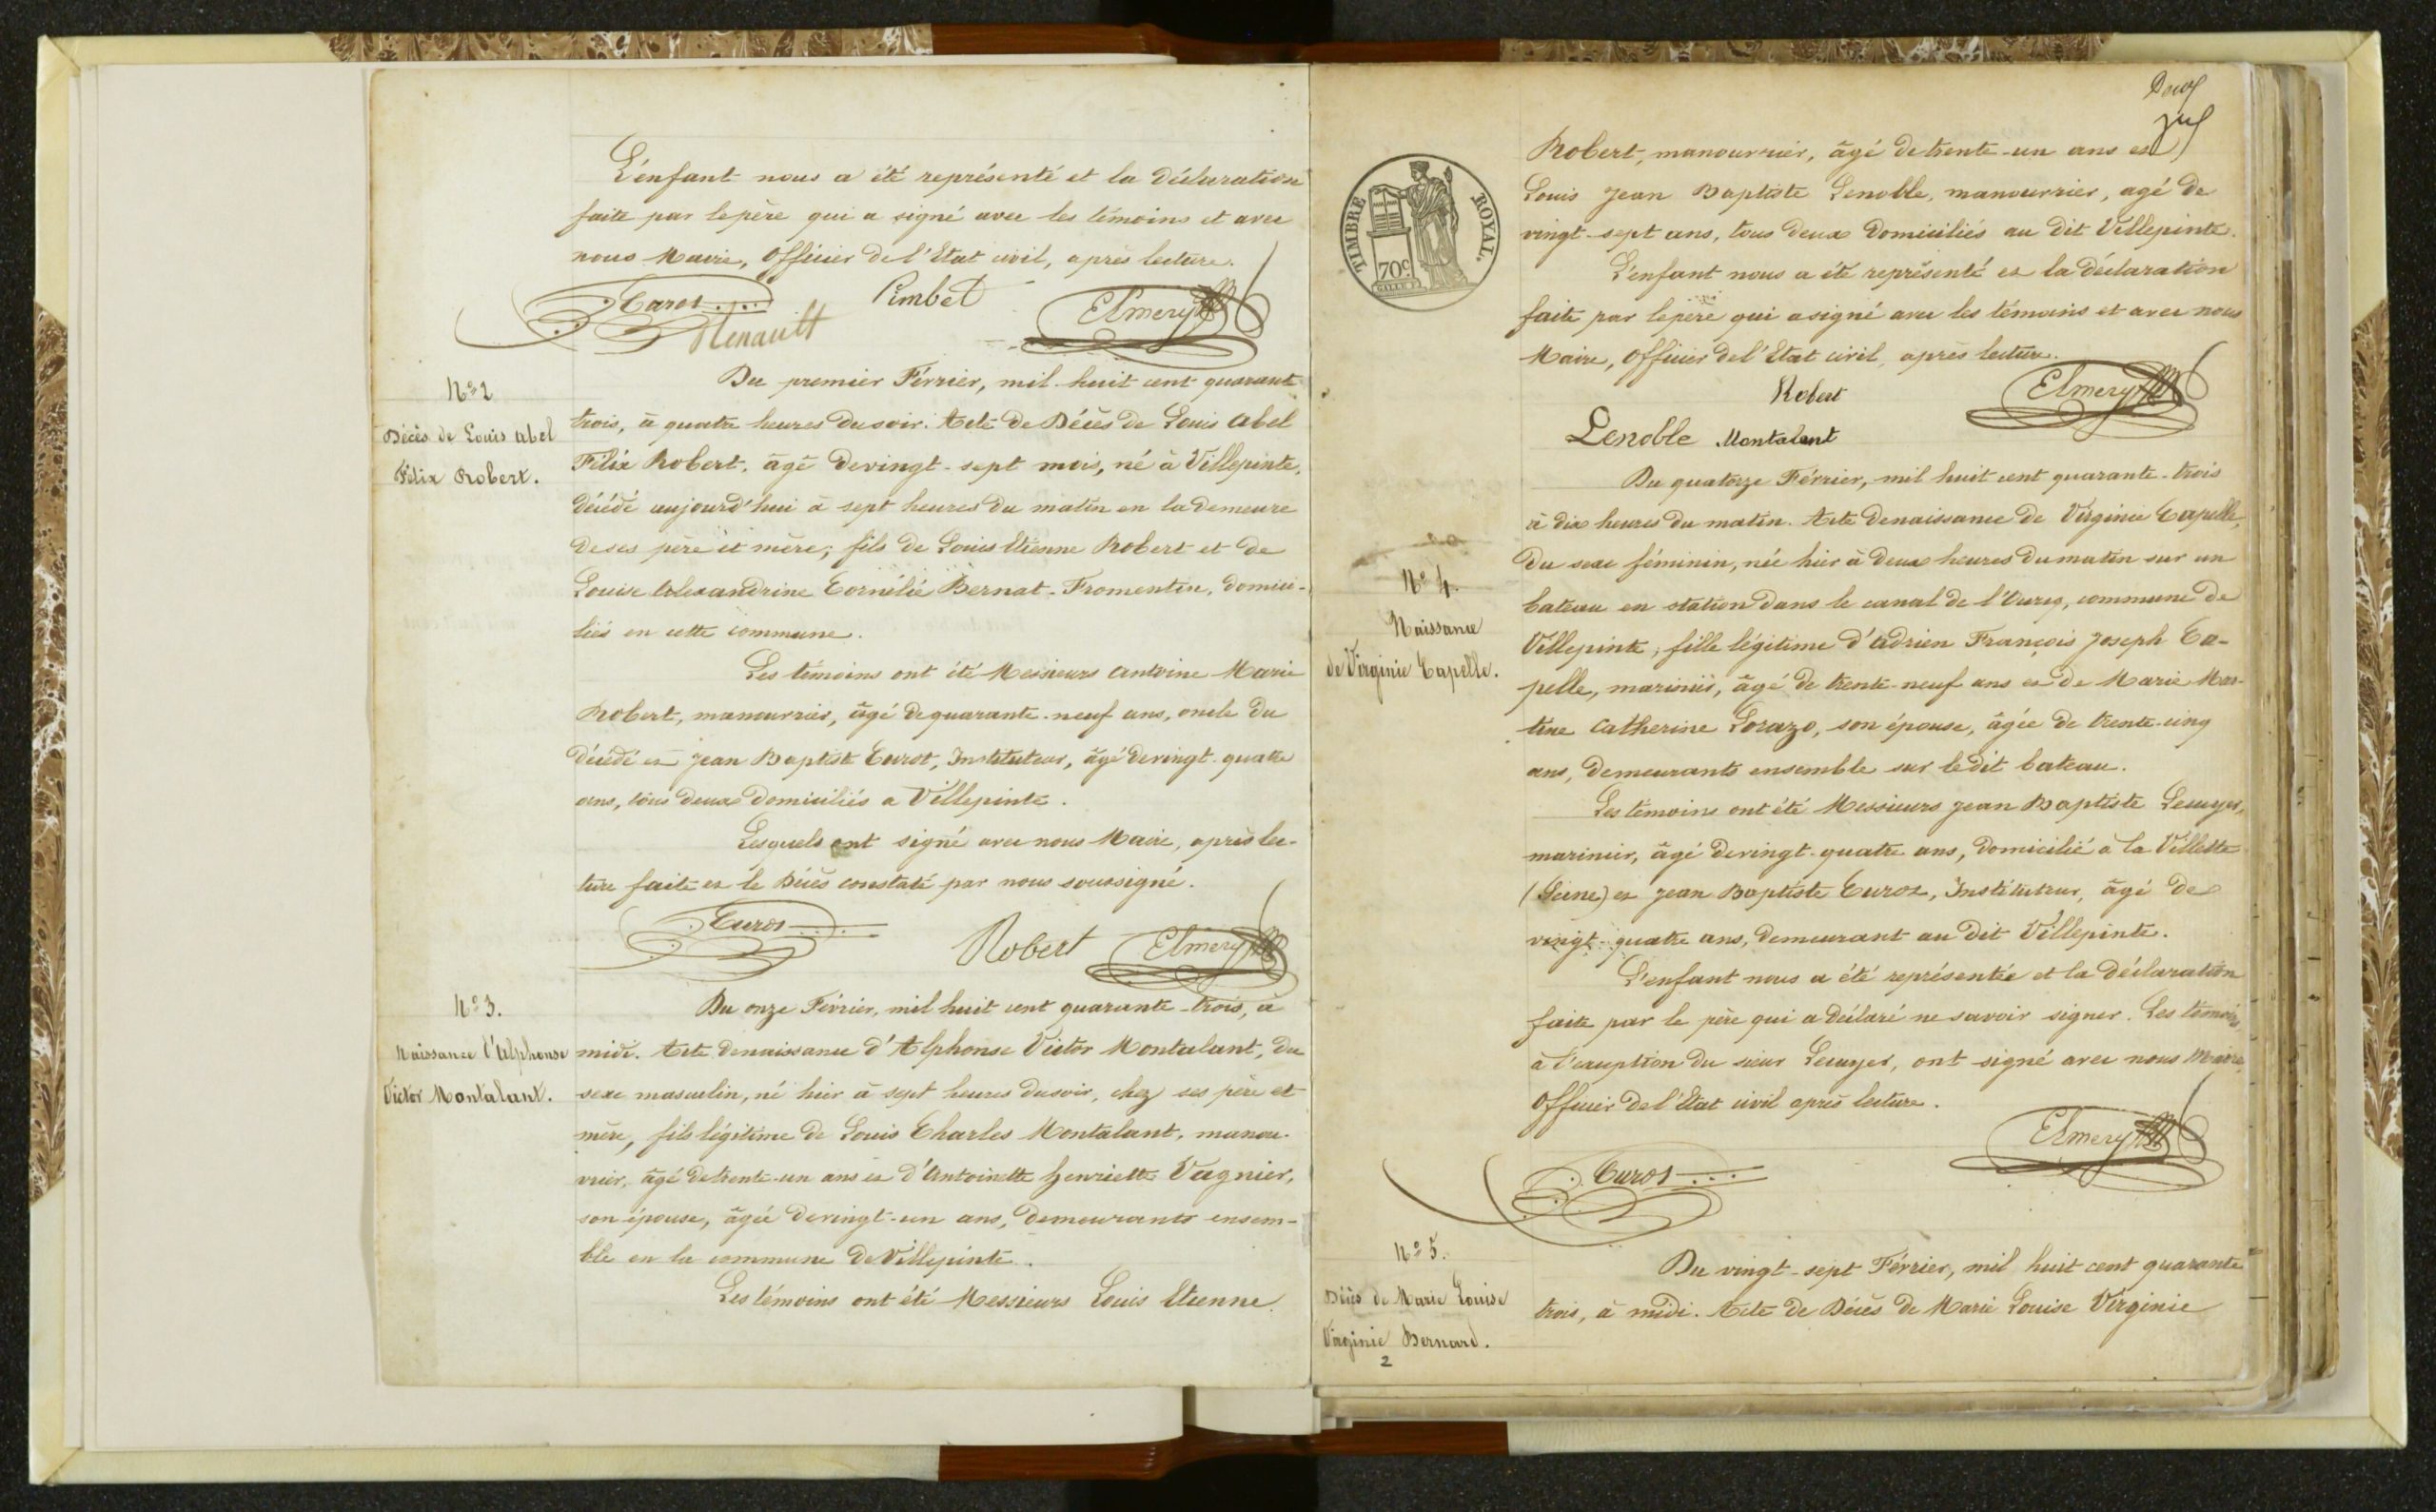 L'enfant nous a été représenté et la déclaration
faite par le père qui a signé avec les témoins et avec
nous Maire, Officier de l'Etat civil, après lecture.
Curot Pimbet Elmery
Renault
N° 2
Décès de Louis Abel
Félix Robert.
Du premier Février, mil huit cent quarante
trois, à quatre heures du soir. Acte de Décès de Louis Abel
Félix Robert, âgé de vingt-sept mois, né à Villepinte,
décédé aujourd'hui à sept heures du matin en la demeure
de ses père et mère; fils de Louis Etienne Robert et de
Louise Alexandrine Cornélie Bernat-Fromentin, domici-
liés en cette commune.
Les témoins ont été Messieurs Antoine Marie
Robert, manouvrier, âgé de quarante-neuf ans, oncle du
décédé et Jean Baptiste Curot, Instituteur, âgé de vingt-quatre
ans, tous deux domiciliés a Villepinte.
Lesquels ont signé avec nous Maire, après lec-
ture faite et le Décès constaté par nous soussigné.
Curot Robert Elmery
N° 3.
Naissance d'Alphonse
Victor Montalant.
Du onze Février, mil huit cent quarante-trois, à
midi. Acte de naissance d'Alphonse Victor Montalant, du
sexe masculin, né hier à sept heures du soir, chez ses père et
mère, fils légitime de Louis Charles Montalant, manou-
vrier, âgé de trente-un ans et d'Antoinette Henriette Vagnier,
son épouse, âgée de vingt-un ans, demeurants ensem-
ble en la commune de Villepinte.
Les témoins ont été Messieurs Louis Etienne
TIMBRE ROYAL.
70c
Robert, manouvrier, âgé de trente-un ans et
Louis Jean Baptiste Lenoble, manouvrier, agé de
vingt-sept ans, tous deux domiciliés au dit Villepinte.
L'enfant nous a été représenté et la déclaration
faite par le père qui a signé avec les témoins et avec nous
Maire, Officier de l'Etat civil, après lecture.
Robert Elmery
Lenoble Montalant
N° 4.
Naissance
de Virginie Capelle.
Du quatorze Février, mil huit cent quarante-trois
à dix heures du matin. Acte de naissance de Virginie Capelle,
du sexe féminin, née hier à deux heures du matin sur un
bateau en station dans le canal de l'Ourcq, commune de
Villepinte; fille légitime d'Adrien François Joseph Ca-
pelle, marinier, âgé de trente-neuf ans et de Marie Mar-
tine Catherine Lorazo, son épouse, âgée de trente-cinq
ans, demeurants ensemble sur le dit bateau.
Les témoins ont été Messieurs Jean Baptiste Lecuyer,
marinier, âgé de vingt-quatre ans, domicilié à la Villette
(Seine) et Jean Baptiste Curot, Instituteur, âgé de
vingt-quatre ans, demeurant au dit Villepinte.
L'enfant nous a été représentée et la déclaration
faite par le père qui a déclaré ne savoir signer. Les témoins,
à l'exception du sieur Lecuyer, ont signé avec nous Maire
Officier de l'Etat civil après lecture.
Elmery
Curot
N° 5.
Décès de Marie Louise
Virginie Bernard.
2
Du vingt-sept Février, mil huit cent quarante
trois, à midi. Acte de Décès de Marie Louise Virginie